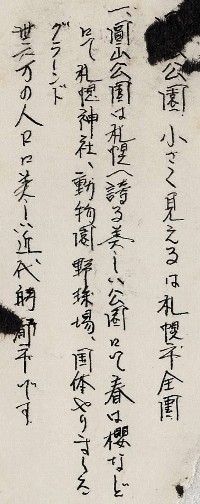 公園 小さく見えるは札幌市全圖
一、圓山公園は札幌へ誇る美しい公園ロて春は櫻など
ロて札幌神社、動物園 野球場、国体やりました
グラーンド
卅三万の人口ロ美しい近代的都市です